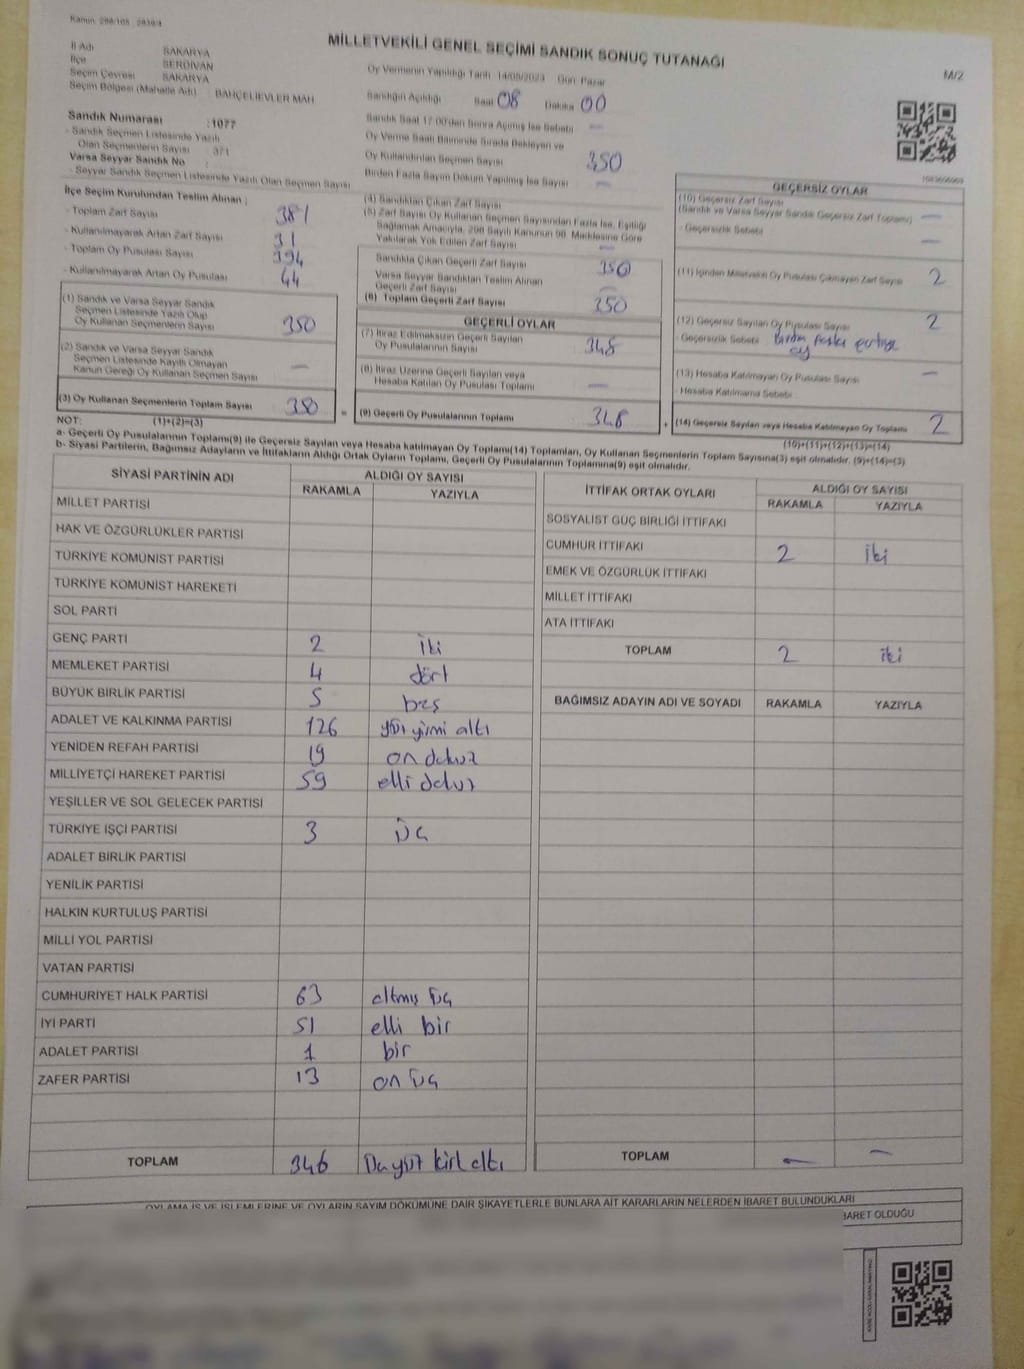 Kanun: 298/105 - 2839/4
MİLLETVEKİLİ GENEL SEÇİMİ SANDIK SONUÇ TUTANAĞI
M/2
İl Adı SAKARYA
İlçe SERDİVAN
Seçim Çevresi SAKARYA
Seçim Bölgesi (Mahalle Adı) : BAHÇELİEVLER MAH
Sandık Numarası :1077
- Sandık Seçmen Listesinde Yazılı
Olan Seçmenlerin Sayısı : 371
Varsa Seyyar Sandık No :
- Seyyar Sandık Seçmen Listesinde Yazılı Olan Seçmen Sayısı
Oy Vermenin Yapıldığı Tarih 14/05/2023 Gün Pazar
Sandığın Açıldığı Saat 08 Dakika 00
Sandık Saat 17:00'den Sonra Açılmış İse Sebebi —
Oy Verme Saati Bitiminde Sırada Bekleyen ve
Oy Kullandırılan Seçmen Sayısı 350
Birden Fazla Sayım Döküm Yapılmış İse Sayısı —
İlçe Seçim Kurulundan Teslim Alınan ;
- Toplam Zarf Sayısı 381
- Kullanılmayarak Artan Zarf Sayısı 31
- Toplam Oy Pusulası Sayısı 394
- Kullanılmayarak Artan Oy Pusulası 44
(1) Sandık ve Varsa Seyyar Sandık
Seçmen Listesinde Yazılı Olup
Oy Kullanan Seçmenlerin Sayısı 350
(2) Sandık ve Varsa Seyyar Sandık
Seçmen Listesinde Kayıtlı Olmayan
Kanun Gereği Oy Kullanan Seçmen Sayısı —
(3) Oy Kullanan Seçmenlerin Toplam Sayısı 350
(4) Sandıktan Çıkan Zarf Sayısı
(5) Zarf Sayısı Oy Kullanan Seçmen Sayısından Fazla İse, Eşitliği
Sağlamak Amacıyla, 298 Sayılı Kanunun 98. Maddesine Göre
Yakılarak Yok Edilen Zarf Sayısı —
Sandıkta Çıkan Geçerli Zarf Sayısı 350
Varsa Seyyar Sandıktan Teslim Alınan
Geçerli Zarf Sayısı —
(6) Toplam Geçerli Zarf Sayısı 350
GEÇERLİ OYLAR
(7) İtiraz Edilmeksizin Geçerli Sayılan
Oy Pusulalarının Sayısı 348
(8) İtiraz Üzerine Geçerli Sayılan veya
Hesaba Katılan Oy Pusulası Toplamı —
= (9) Geçerli Oy Pusulalarının Toplamı 348
GEÇERSİZ OYLAR
(10) Geçersiz Zarf Sayısı
(Sandık ve Varsa Seyyar Sandık Geçersiz Zarf Toplamı) —
- Geçersizlik Sebebi —
(11) İçinden Milletvekili Oy Pusulası Çıkmayan Zarf Sayısı 2
(12) Geçersiz Sayılan Oy Pusulası Sayısı 2
- Geçersizlik Sebebi Birden fazla partiye
oy
(13) Hesaba Katılmayan Oy Pusulası Sayısı —
- Hesaba Katılmama Sebebi
+ (14) Geçersiz Sayılan veya Hesaba Katılmayan Oy Toplamı 2
NOT: (1)+(2)=(3)
(10)+(11)+(12)+(13)=(14)
a- Geçerli Oy Pusulalarının Toplamı(9) ile Geçersiz Sayılan veya Hesaba katılmayan Oy Toplamı(14) Toplamları, Oy Kullanan Seçmenlerin Toplam Sayısına(3) eşit olmalıdır. (9)+(14)=(3)
b- Siyasi Partilerin, Bağımsız Adayların ve İttifakların Aldığı Ortak Oyların Toplamı, Geçerli Oy Pusulalarının Toplamına(9) eşit olmalıdır.
SİYASİ PARTİNİN ADI ALDIĞI OY SAYISI
RAKAMLA YAZIYLA
MİLLET PARTİSİ
HAK VE ÖZGÜRLÜKLER PARTİSİ
TÜRKİYE KOMÜNİST PARTİSİ
TÜRKİYE KOMÜNİST HAREKETİ
SOL PARTİ
GENÇ PARTİ 2 iki
MEMLEKET PARTİSİ 4 dört
BÜYÜK BİRLİK PARTİSİ 5 beş
ADALET VE KALKINMA PARTİSİ 126 yüz yirmi altı
YENİDEN REFAH PARTİSİ 19 on dokuz
MİLLİYETÇİ HAREKET PARTİSİ 59 elli dokuz
YEŞİLLER VE SOL GELECEK PARTİSİ
TÜRKİYE İŞÇİ PARTİSİ 3 üç
ADALET BİRLİK PARTİSİ
YENİLİK PARTİSİ
HALKIN KURTULUŞ PARTİSİ
MİLLİ YOL PARTİSİ
VATAN PARTİSİ
CUMHURİYET HALK PARTİSİ 63 altmış üç
İYİ PARTİ 51 elli bir
ADALET PARTİSİ 1 bir
ZAFER PARTİSİ 13 on üç
TOPLAM 346 Üç yüz kırk altı
İTTİFAK ORTAK OYLARI ALDIĞI OY SAYISI
RAKAMLA YAZIYLA
SOSYALİST GÜÇ BİRLİĞİ İTTİFAKI
CUMHUR İTTİFAKI 2 iki
EMEK VE ÖZGÜRLÜK İTTİFAKI
MİLLET İTTİFAKI
ATA İTTİFAKI
TOPLAM 2 iki
BAĞIMSIZ ADAYIN ADI VE SOYADI RAKAMLA YAZIYLA
TOPLAM — —
OYLAMA İŞ VE İŞLEMLERİNE VE OYLARIN SAYIM DÖKÜMÜNE DAİR ŞİKAYETLERLE BUNLARA AİT KARARLARIN NELERDEN İBARET BULUNDUKLARI
BARET OLDUĞU